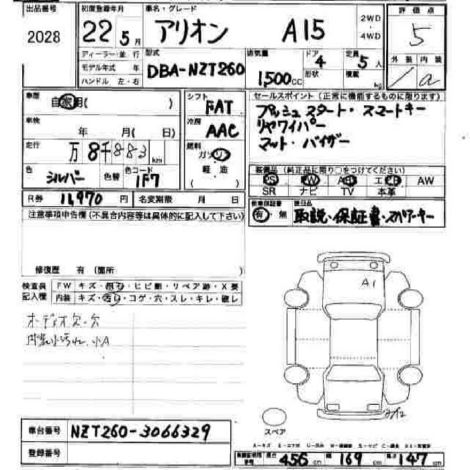 出品番号 初度登録年月 車名・グレード 2WD 評価点
2028 22年5月 アリオン A15 4WD 5
ディーラー・並行 型式 排気量 ドア 定員 外装 内装
モデル年式 年
ハンドル 左・右 DBA-NZT260 1,500cc 4 5人 A
車歴 シフト セールスポイント(正常に機能するものに限る)
自家用( ) FAT プッシュスタート・スマートキー
車検 冷房 リヤワイパー
年 月 日( ) AAC マット・バイザー
走行 燃料
万8千883km ガソリン
軽油
色 色替 色コード 装備(純正品に限り○をつけてください)
シルバー 1F7 SR ナビ TV 本革 AW
R券 11,970円 名変期限 月 日
注意事項申告欄(不具合内容等は具体的に記入して下さい) 有・無 取説・保証書・スペアキー
修復歴 有(箇所 )
検査員 FW キズ・ヒビ割・リペア跡・X要
記入欄 内装 キズ・汚れ・コゲ・穴・スレ・キレ・破レ
A1
オーディオ欠・欠
内装小汚れ、小A
スペア
車台番号 NZT260-3066329
登録番号 長さ 456cm 幅 169cm 高さ 147cm